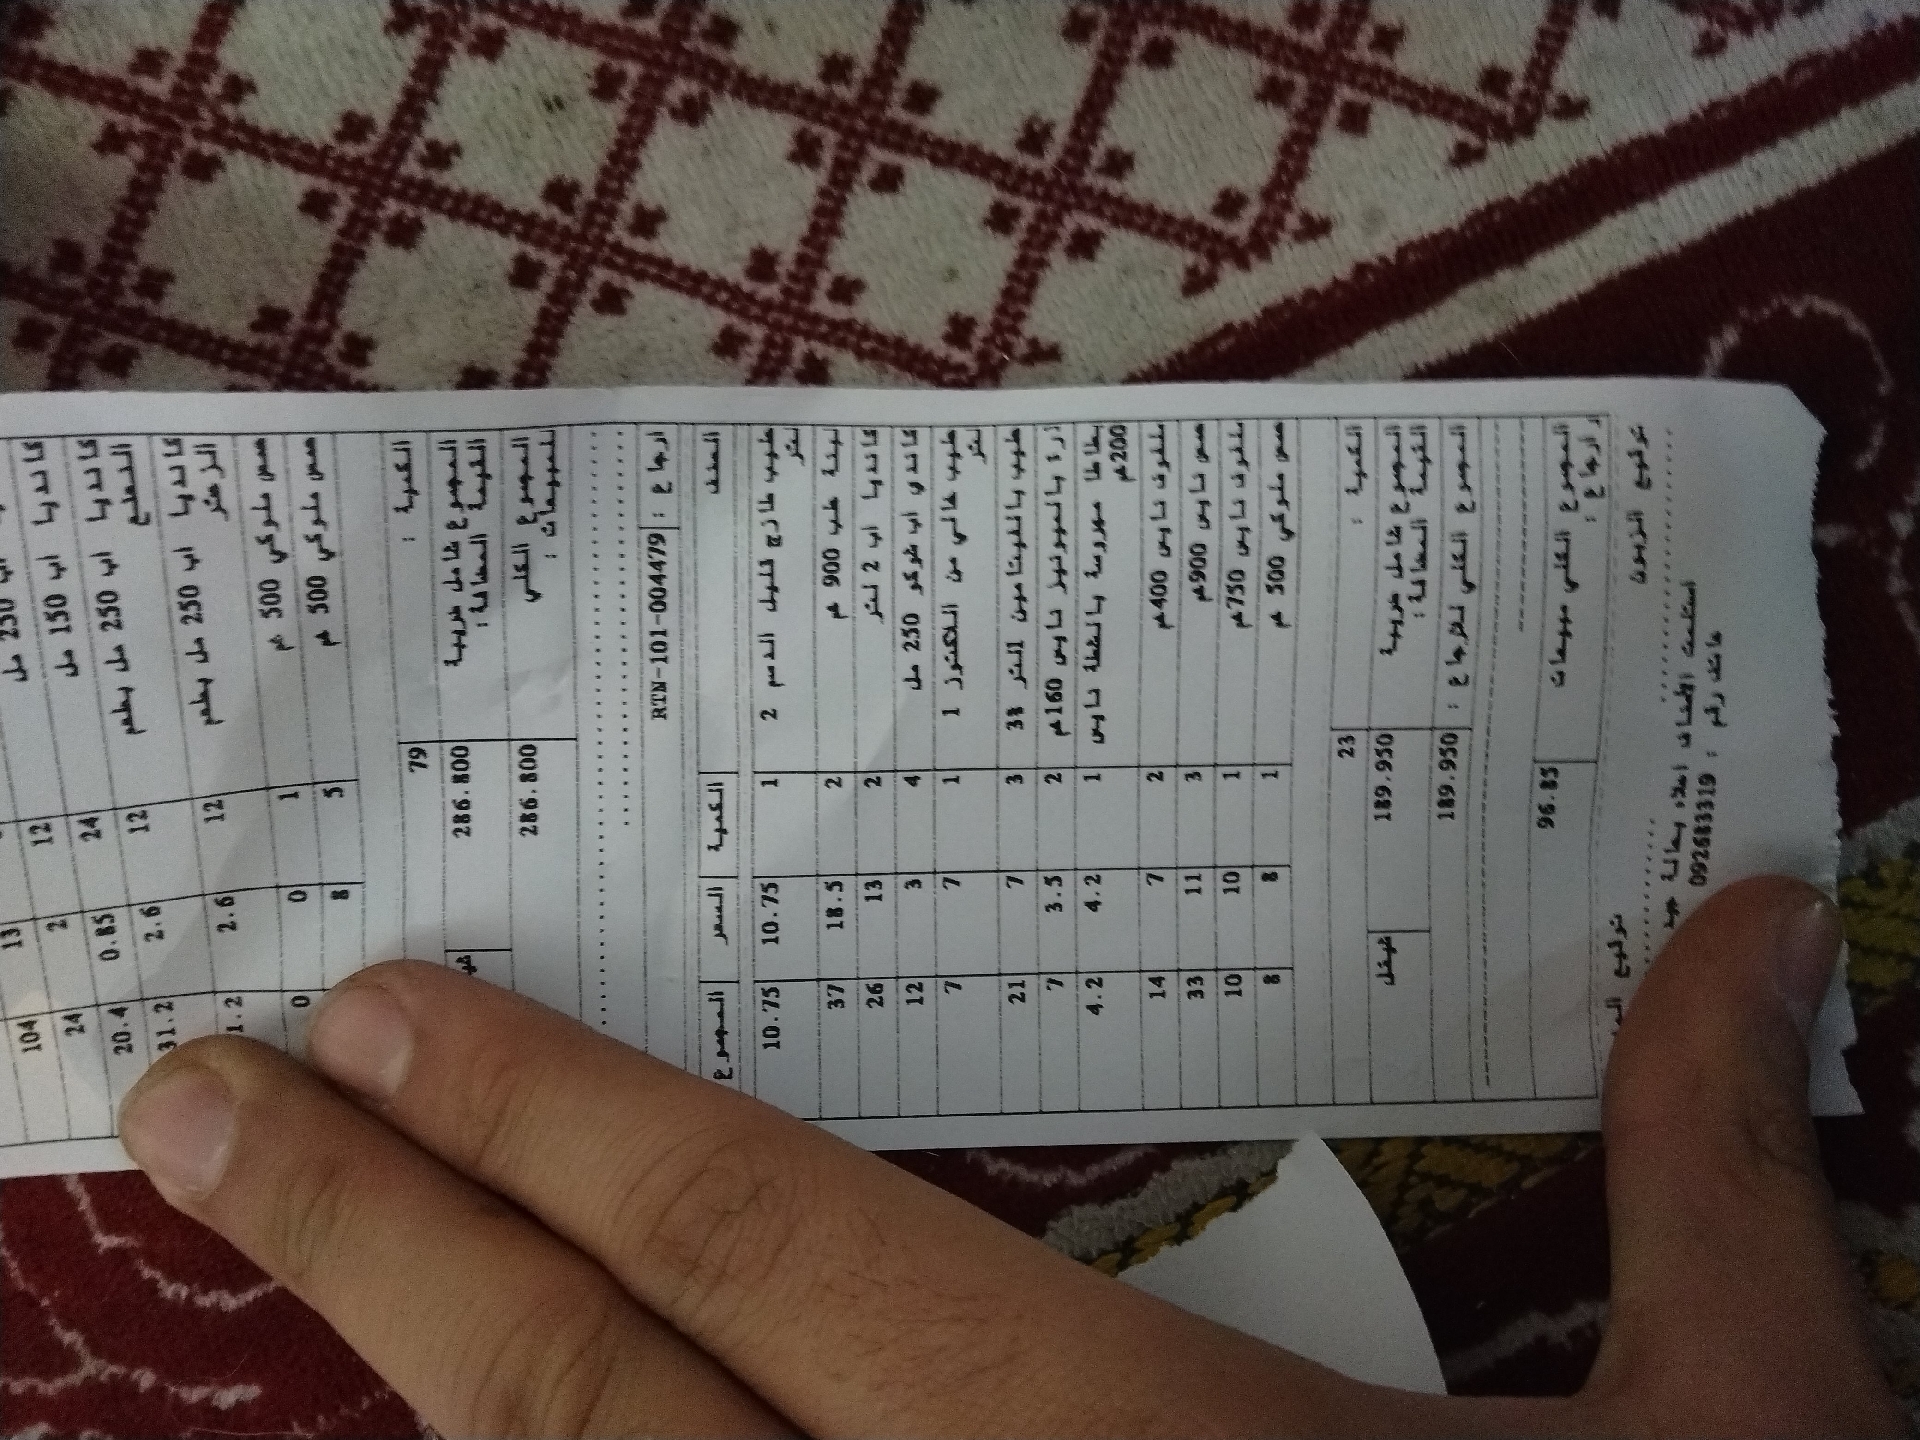 250 مل 13 104
كانديا اب 150 مل 12 2 24
كانديا اب 250 مل بطعم 24 0.85 20.4
12 2.6 31.2
كانديا اب 250 مل بطعم الزعتر 12 2.6 1.2
حمص ملوكي 500 غم 1 0 0
حمص ملوكي 500 غم 5 8
الكمية : 79
المجموع شامل ضريبة القيمة المضافة : 286.800
المجموع الكلي للمبيعات : 286.800
ارجاع : RTN-101-004479
الصنف الكمية السعر المجموع
حليب طازج قليل الدسم 2 لتر 1 10.75 10.75
لبنة علب 900 غم 2 18.5 37
كانديا اب 2 لتر 2 13 26
كاندي اب شوكو 250 مل 4 3 12
حليب خالي من اللاكتوز 1 لتر 1 7 7
حليب بالفيتامين لتر 3% 3 7 21
ذرة بالمايونيز نابس 160غم 2 3.5 7
بطاطا مهروسة بالقشطة نابس 200غم 1 4.2 4.2
ملفوف نابس 400غم 2 7 14
حمص نابس 900غم 3 11 33
ملفوف نابس 750غم 1 10 10
حمص ملوكي 500 غم 1 8 8
الكمية : 23
المجموع شامل ضريبة القيمة المضافة : 189.950 شيقل
المجموع الكلي للارجاع : 189.950
المجموع الكلي مبيعات / ارجاع : 96.85
توقيع الزبون توقيع
استلمت الأصناف اعلاه بحالة جيد
هاتف رقم : 092683319